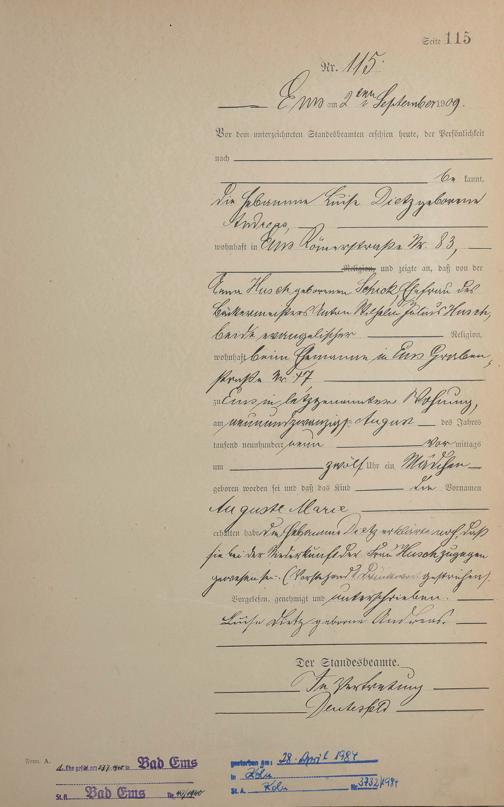 Seite 115
Nr. 115.
Ems am 2ten September 1909.
Vor dem unterzeichneten Standesbeamten erschien heute, der Persönlichkeit
nach
be kannt,
die Hebamme Luise Dietz geborene
Andreas,
wohnhaft in Ems Römerstraße Nr. 83,
Religion, und zeigte an, daß von der
Husch geborenen Ehefrau des
Bäckermeisters Anton Wilhelm Julius Husch,
beide evangelischer Religion,
wohnhaft beim Ehemanne in Ems Graben-
straße Nr. 47
zu Ems in letztgenannter Wohnung,
am neunundzwanzigsten August des Jahres
tausend neunhundert neun vor mittags
um zwölf Uhr ein Mädchen
geboren worden sei und daß das Kind die Vornamen
Auguste Marie
erhalten habe. Die Hebamme Dietz erklärte noch, daß
sie bei der Niederkunft der Frau Husch zugegen
gewesen sei. (Vorstehend Druckwort gestrichen).
Vorgelesen, genehmigt und unterschrieben.
Luise Dietz geborne Andreas.
Der Standesbeamte.
In Vertretung
Form. A.
Bad Ems
St. A. Bad Ems Nr.
gestorben am: 28. April 1984
in Köln
St. A. Köln Nr. 3732/1984